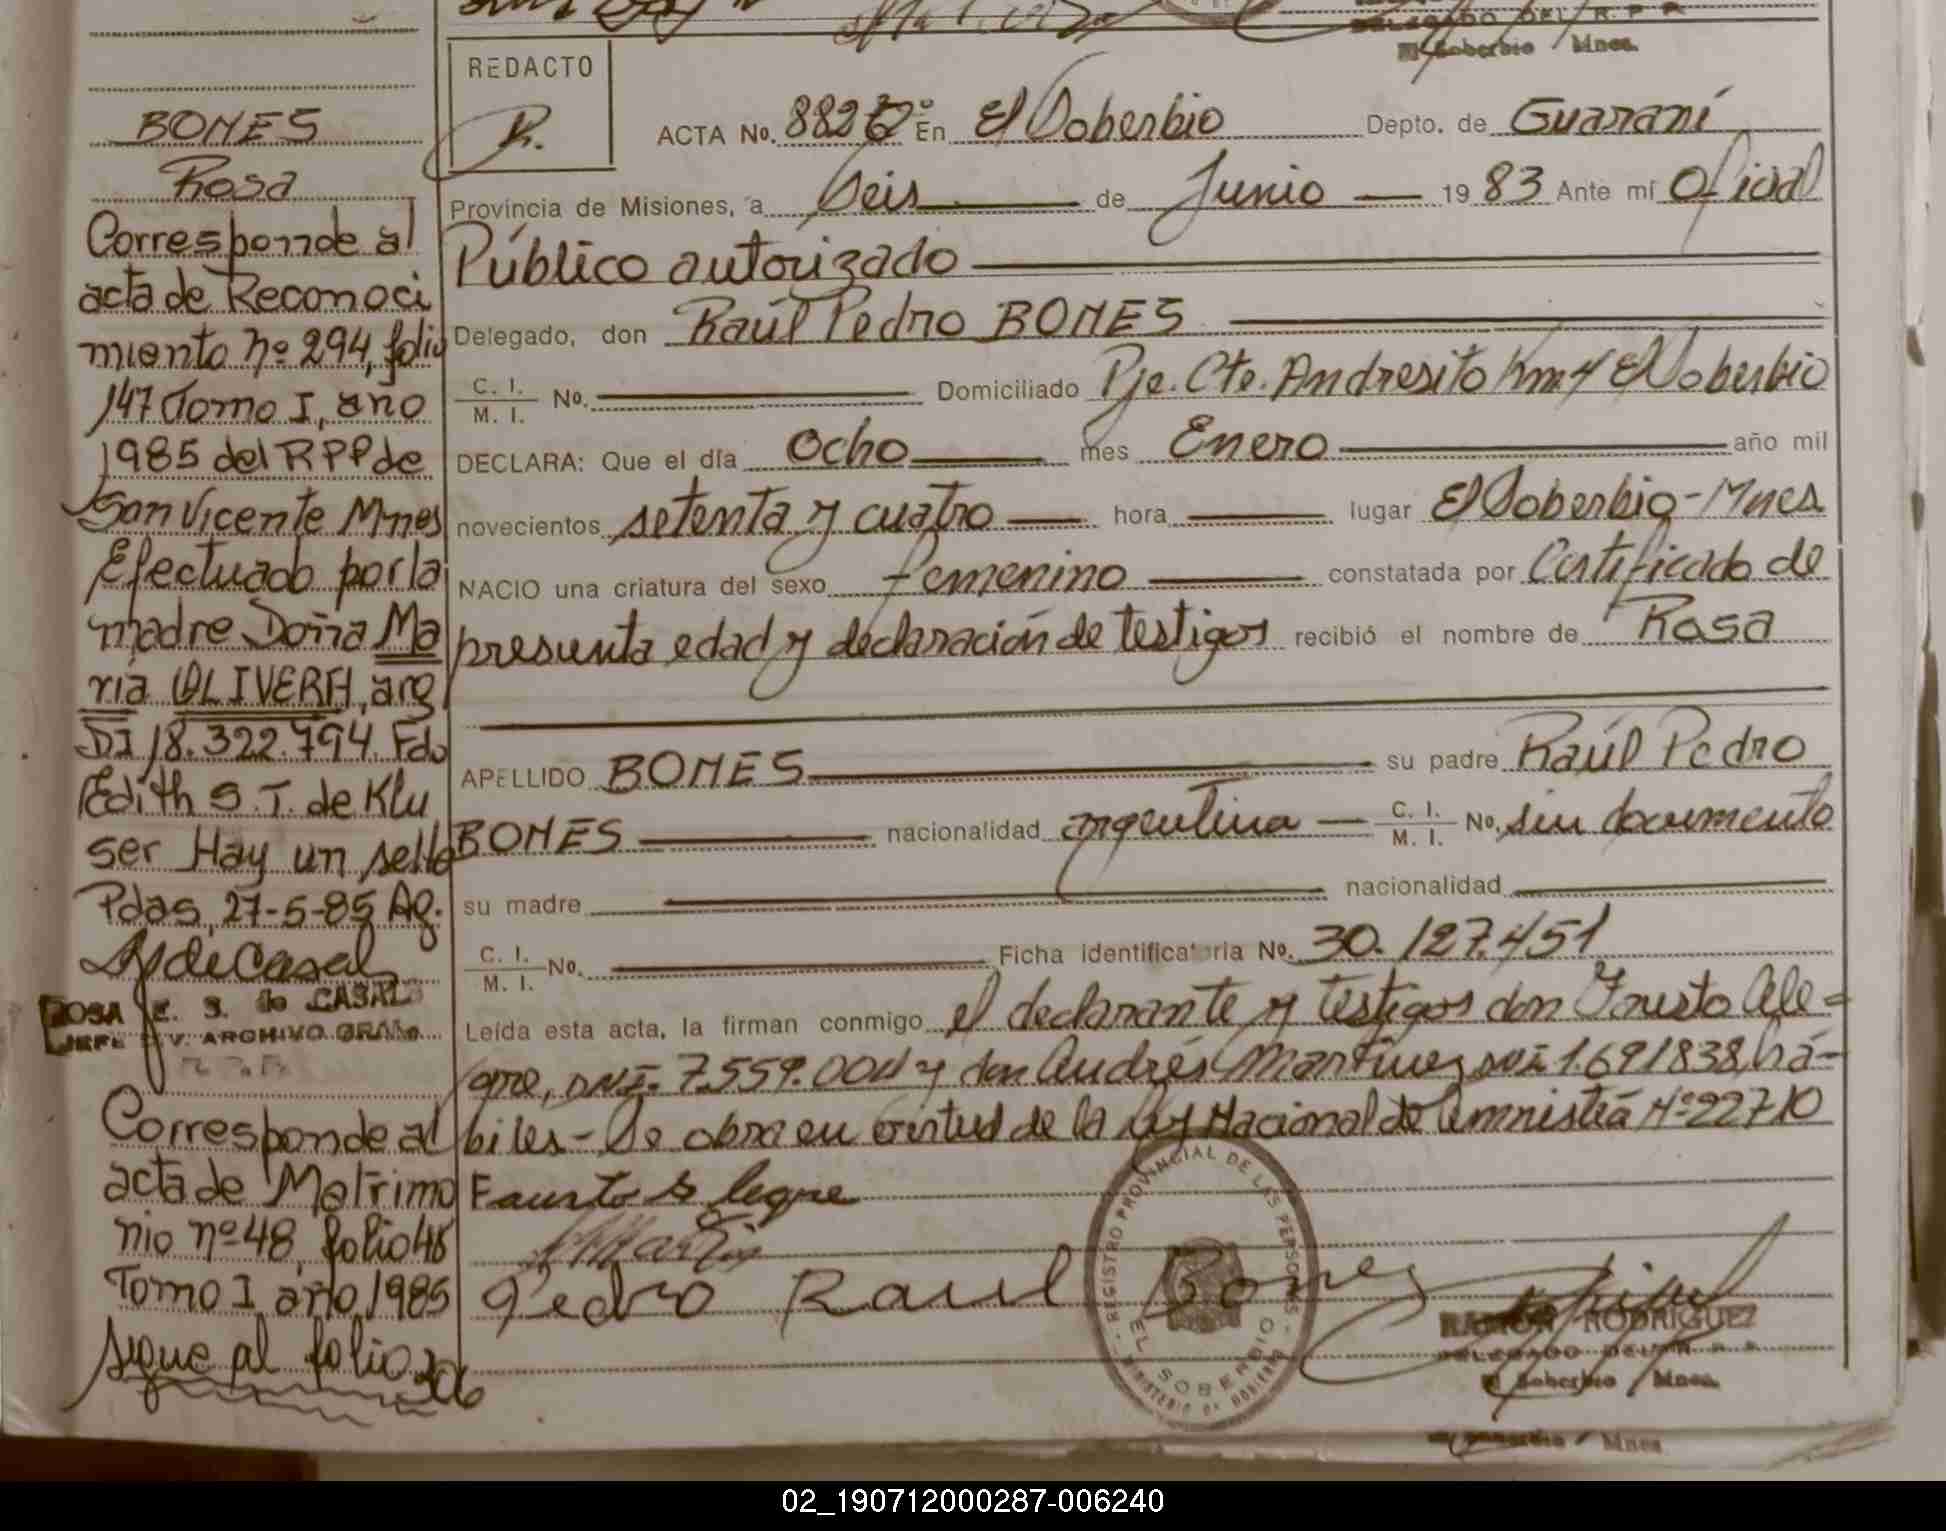 DELEGADO DEL R. P. P.
El Soberbio Mnes.
REDACTO
R.
ACTA No. 882 En El Soberbio Depto. de Guaraní
Provincia de Misiones, a Seis de Junio 19 83 Ante mí Oficial
Público autorizado
Delegado, don Raúl Pedro BONES
C. I.
M. I. No. Domiciliado Pje. Cte. Andresito Km 4 El Soberbio
DECLARA: Que el día Ocho mes Enero año mil
novecientos setenta y cuatro hora lugar El Soberbio - Mnes
NACIO una criatura del sexo femenino constatada por Certificado de
presunta edad y declaración de testigos recibió el nombre de Rosa
APELLIDO BONES su padre Raúl Pedro
BONES nacionalidad argentina C. I.
M. I. No. sin documento
su madre nacionalidad
C. I.
M. I. No. Ficha identificatoria No. 30.127.451
Leída esta acta, la firman conmigo el declarante y testigos don Fausto Ale=
gre, DNI. 7.559.004 y don Andrés Martinez 1.691838, há-
biles - Se obra en virtud de la Ley Nacional de Amnistía Nº 22710
Fausto Alegre
Pedro Raul Bones
REGISTRO PROVINCIAL DE LAS PERSONAS
EL SOBERBIO
MINISTERIO DE GOBIERNO
RAMON RODRIGUEZ
DELEGADO DEL R. P. P.
El Soberbio Mnes.
Soberbio Mnes
BONES
Rosa
Corresponde al
acta de Reconoci
miento nº 294, folio
147 Tomo I, año
1985 del RPP de
San Vicente Mnes
Efectuado por la
madre Doña Ma
ría OLIVERA, arg
DI 18.322.794. Fdo
Edith S. T. de Klu
ser Hay un sello
Pdas, 27-5-85 Ag.
RdeCasal
ROSA E. S. de CASALS
JEFE DIV. ARCHIVO GRAL.
R.P.P.
Corresponde al
acta de Matrimo
nio nº 48, folio 48
Tomo I año 1985
sigue al folio 306
02_190712000287-006240